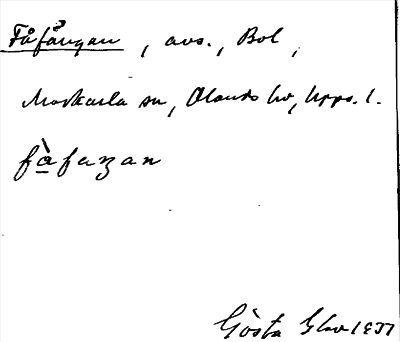 Fåfängan, avs., Bol,
Morkarla sn, Olands hd, Upps. l.
fàfaŋan
Gösta